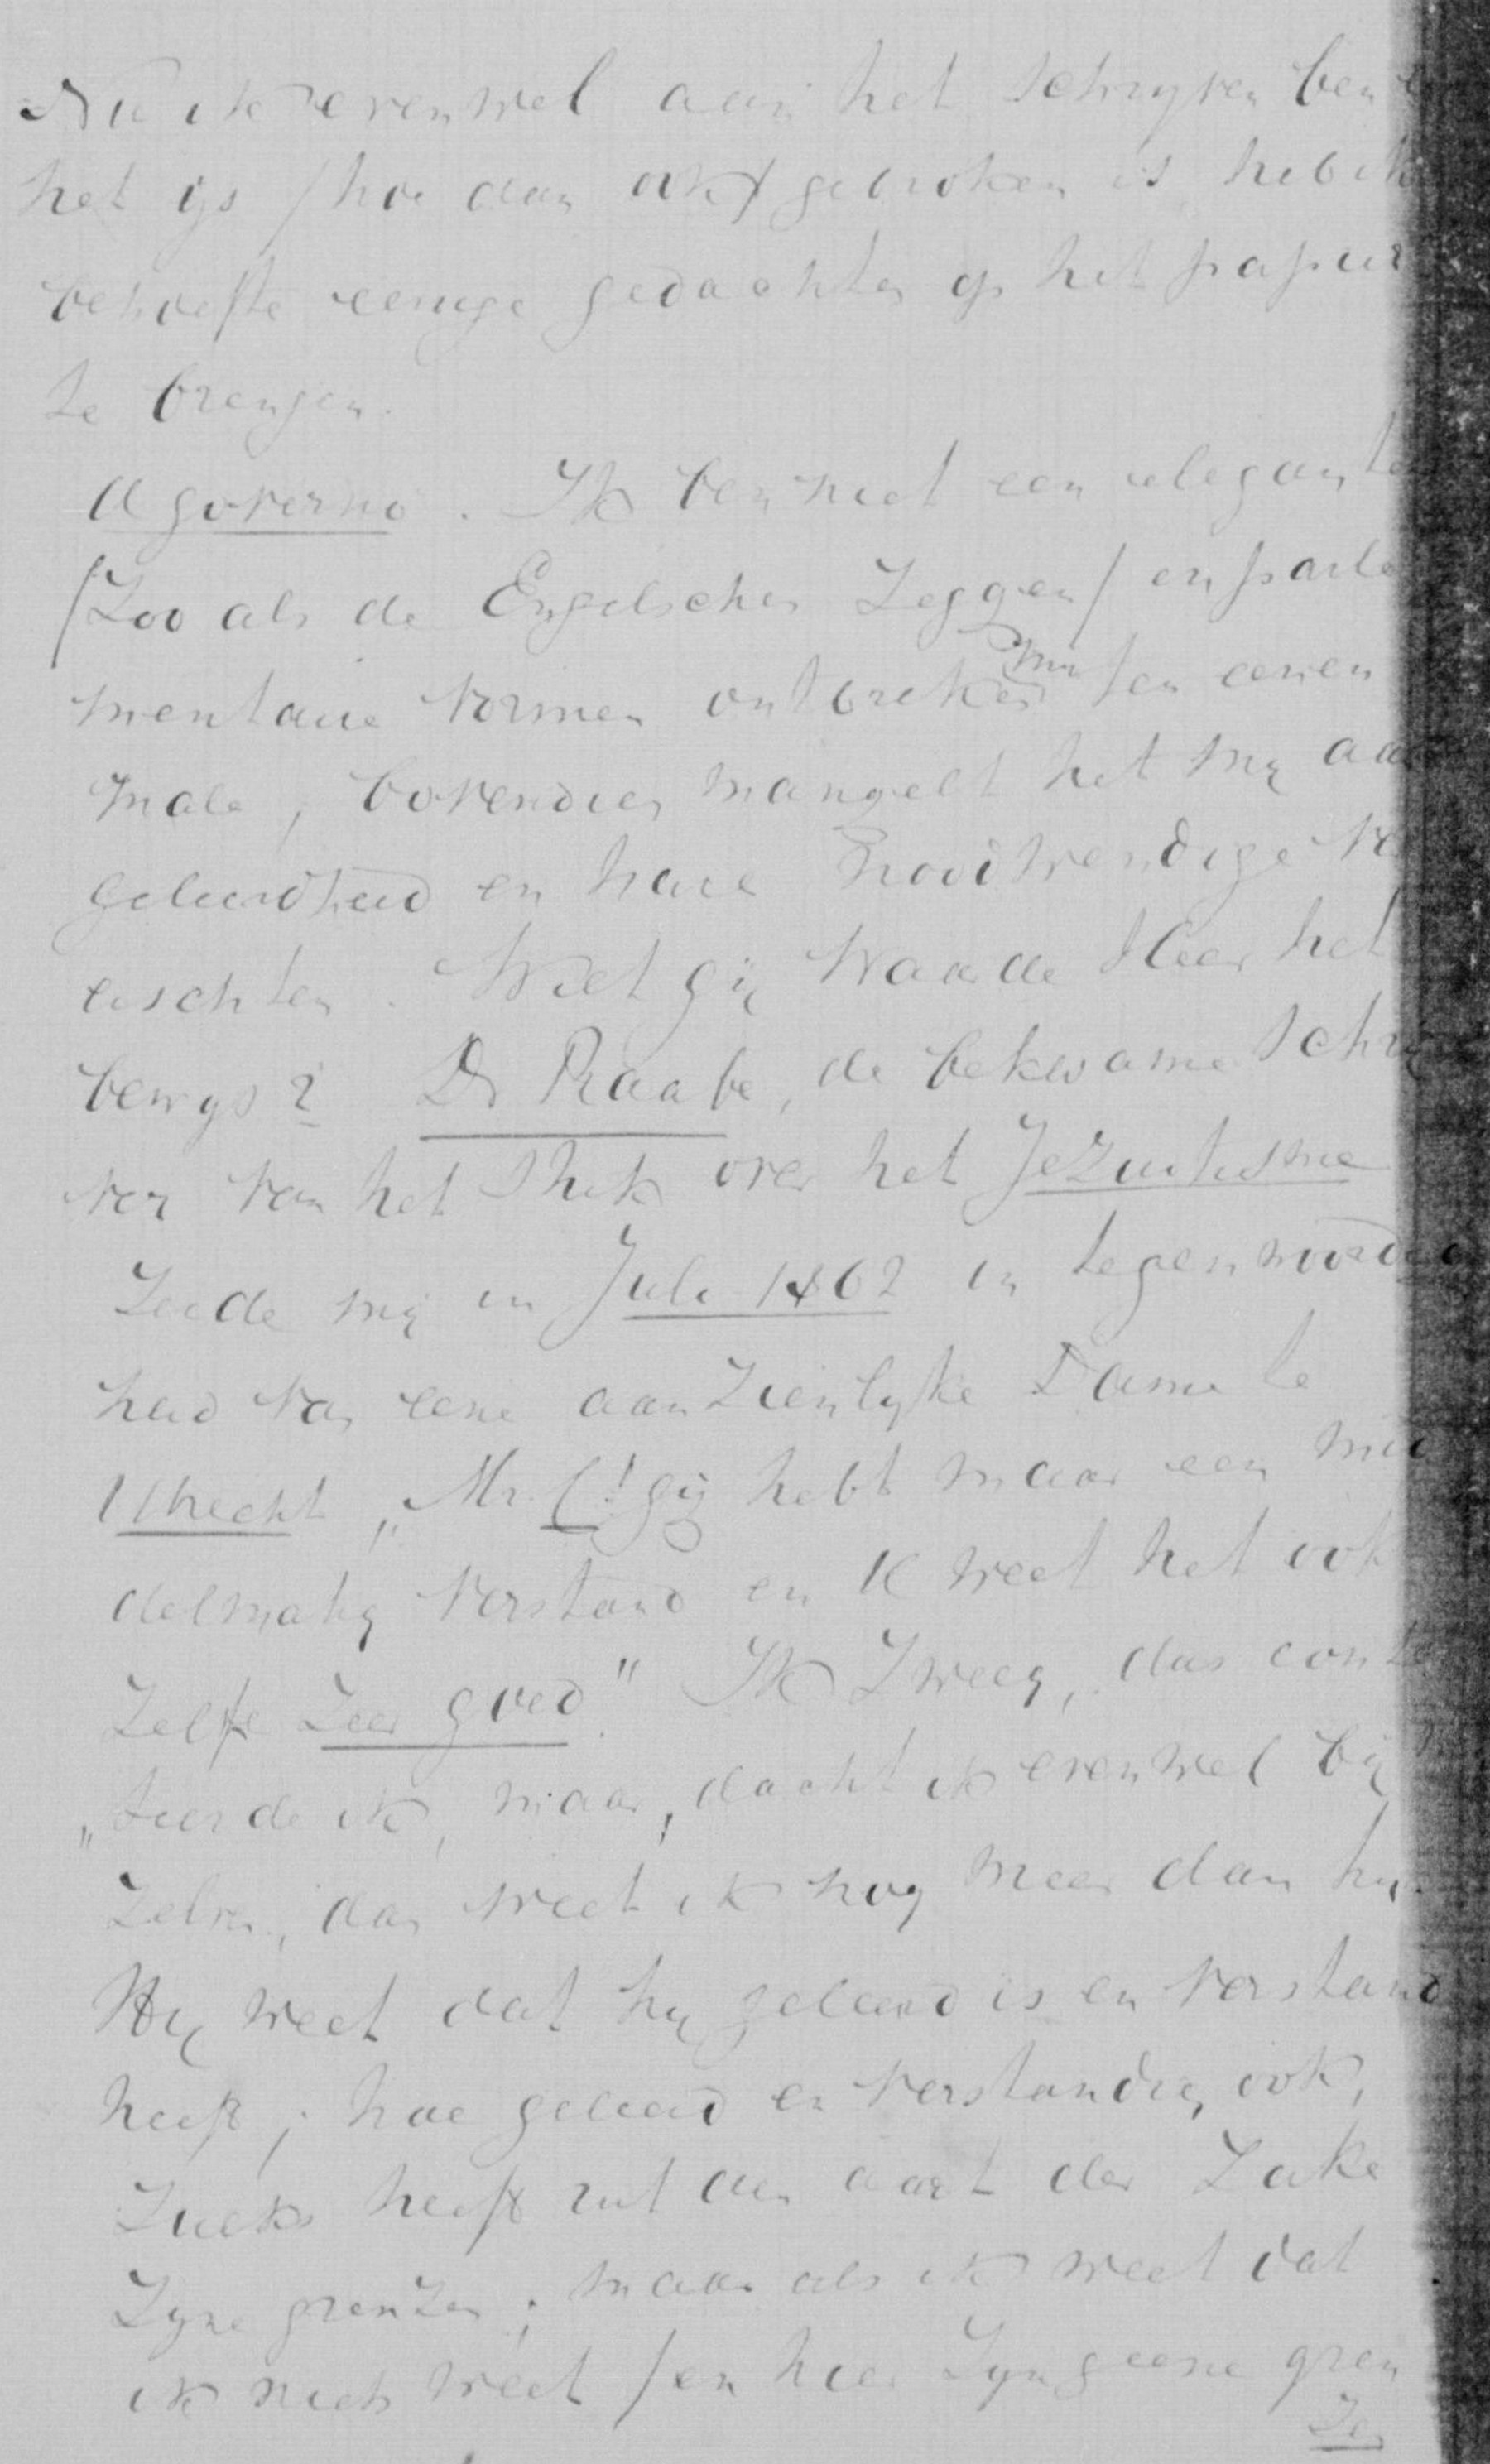 Nu ik evenwel aan het schryven ben e
het ijs /hoe dan ook/ gebroken is heb ik
behoefte eenige gedachten op het papier
te brengen.
A governo. Ik ben niet een elegante
/Zoo als de Engelschen Zeggen/ en parle
mentaire vormen ontbreken my ten eenen
male, bovendien mangelt het my aan
geleerdheid en hare noodwendige ve
eischten. Wilt gij waarde Heer het
bewys? Dr Raabe, de bekwame Schry
ver van het Stuk over het Jezuitisme
Zeide mij in Juli 1862 in tegenwoordig
heid van eene aanZienlyke Dame te
Utrecht „Mr. C! gij hebt maar een mid
delmatig verstand en U weet het ook
Zelfs Zeer goed." Ik Zweeg, dus consta
„teerde ik, maar, dacht ik evenwel bij m
Zelven, dan weet ik nog meer dan hy.
Hy weet dat hy geleerd is en verstand
heeft; hoe geleerd en verstandig ook,
Zulks heeft uit den aart der Zake
Zyne grenZen; maar als ik weet dat
ik niets weet /en hier Zyn geene gren
Zen